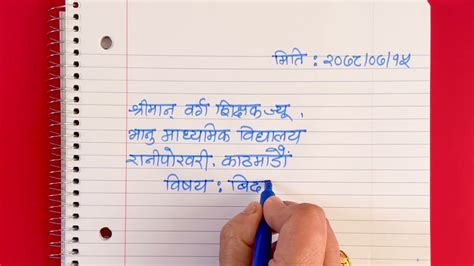 मिति : २०७८/०७/१५
श्रीमान् वर्ग शिक्षकज्यू ,
भानु माध्यमिक विद्यालय
रानीपोखरी, काठमाडौं
विषय : बिद